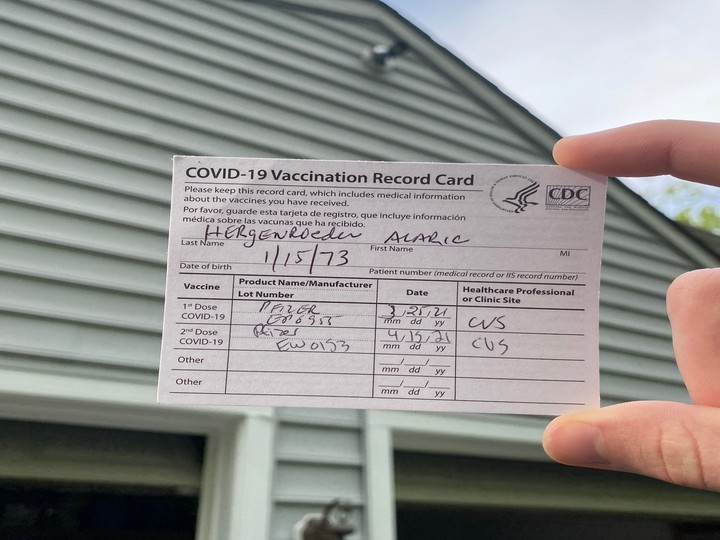 COVID-19 Vaccination Record Card
CDC
Please keep this record card, which includes medical information
about the vaccines you have received.
Por favor, guarde esta tarjeta de registro, que incluye información
médica sobre las vacunas que ha recibido.
HERGENROEDER ALARIC
Last Name First Name MI
1/15/73
Date of birth Patient number (medical record or IIS record number)
Vaccine Product Name/Manufacturer Date Healthcare Professional
Lot Number or Clinic Site
1st Dose PFIZER CVS
COVID-19 mm dd yy
2nd Dose Pfizer 4/15/21 CVS
COVID-19 EW0153 mm dd yy
Other __/__/__
mm dd yy
Other __/__/__
mm dd yy